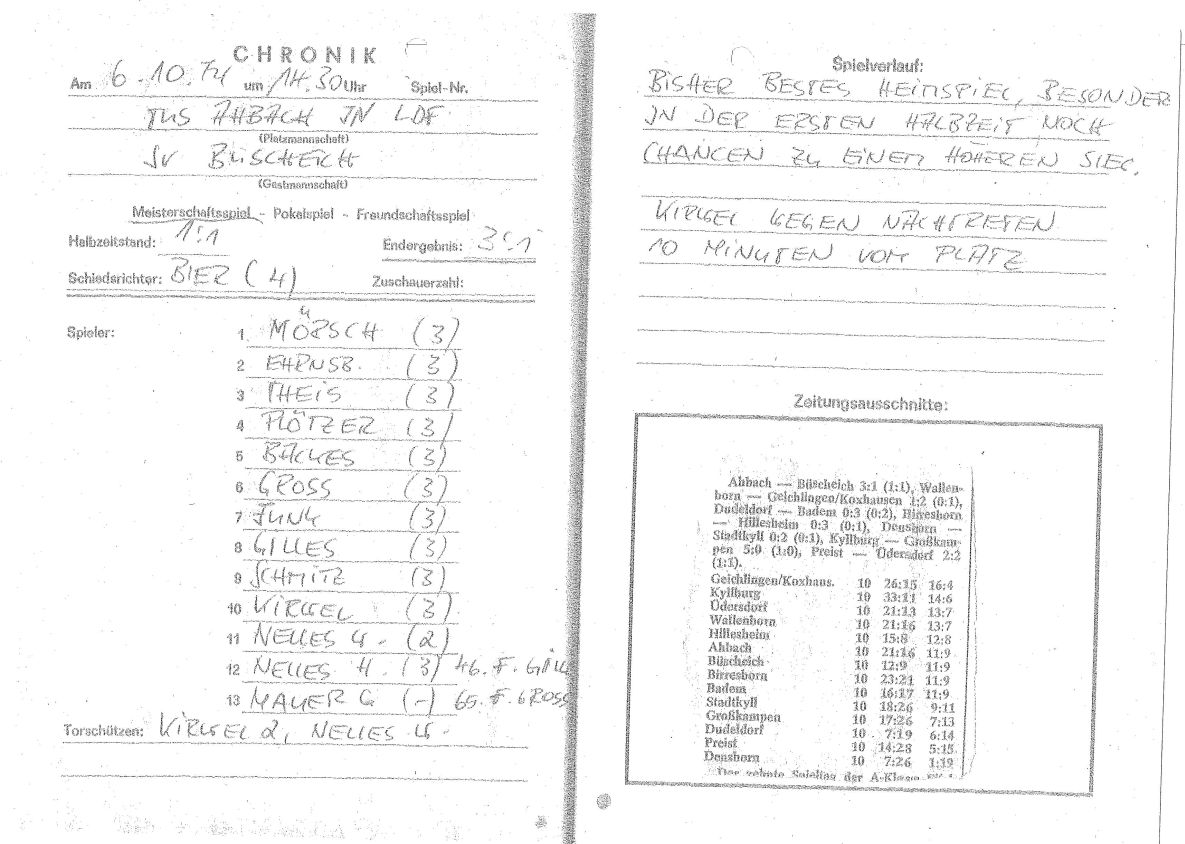 CHRONIK
Am 6.10.74 um 14.30 Uhr Spiel-Nr.
TUS AHBACH IN LDF
(Platzmannschaft)
SV BÜSCHEICH
(Gastmannschaft)
Meisterschaftsspiel - Pokalspiel - Freundschaftsspiel
Halbzeitstand: 1:1 Endergebnis: 3:1
Schiedsrichter: BIER (4) Zuschauerzahl:
Spieler:
1 MÖRSCH (3)
2 EHRNSB. (3)
3 THEIS (3)
4 PLÖTZER (3)
5 BACKES (3)
6 GROSS (3)
7 JUNK (3)
8 GILLES (3)
9 SCHMITZ (3)
10 KIRGEL (3)
11 NELLES U. (2)
12 NELLES H. (3) 46. F. GILL
13 MAUER G (-) 65. F. GROSS
Torschützen: KIRGEL 2, NELLES U.
Spielverlauf:
BISHER BESTES HEIMSPIEL, BESONDER
IN DER ERSTEN HALBZEIT NOCH
CHANCEN ZU EINEM HÖHEREN SIEG.
KIRGEL GEGEN NACHTRETEN
10 MINUTEN VOM PLATZ
Zeitungsausschnitte:
Ahbach — Büscheich 3:1 (1:1), Wallen-
born — Geichlingen/Koxhausen 1:2 (0:1),
Dudeldorf — Badem 0:3 (0:2), Birresborn
— Hillesheim 0:3 (0:1), Densborn —
Stadtkyll 0:2 (0:1), Kyllburg — Großkam-
pen 5:0 (1:0), Preist — Odersdorf 2:2
(1:1).
Geichlingen/Koxhaus. 10 26:15 16:4
Kyllburg 10 33:11 14:6
Odersdorf 10 21:13 13:7
Wallenborn 10 21:16 13:7
Hillesheim 10 15:8 12:8
Ahbach 10 21:16 11:9
Büscheich 10 12:9 11:9
Birresborn 10 23:21 11:9
Badem 10 16:17 11:9
Stadtkyll 10 18:26 9:11
Großkampen 10 17:26 7:13
Dudeldorf 10 7:19 6:14
Preist 10 14:28 5:15
Densborn 10 7:26 1:19
Der zehnte Spieltag der A-Klasse